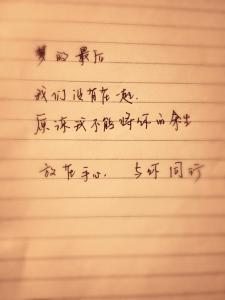 梦的最后
我们没有在一起.
原谅我不能将你的余生
放在手心. 与你同行